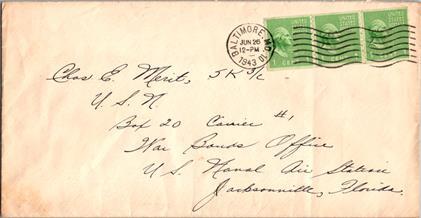 BALTIMORE, MD.
JUN 26
12-PM
1943
UNITED STATES
UNITED STATES
UNITED STATES
1 CENT
Chas E. Merit, SK 3/c
U.S.N.
Box 20 Carrier #1,
War Bonds Office
U.S. Naval Air Station
Jacksonville, Florida.